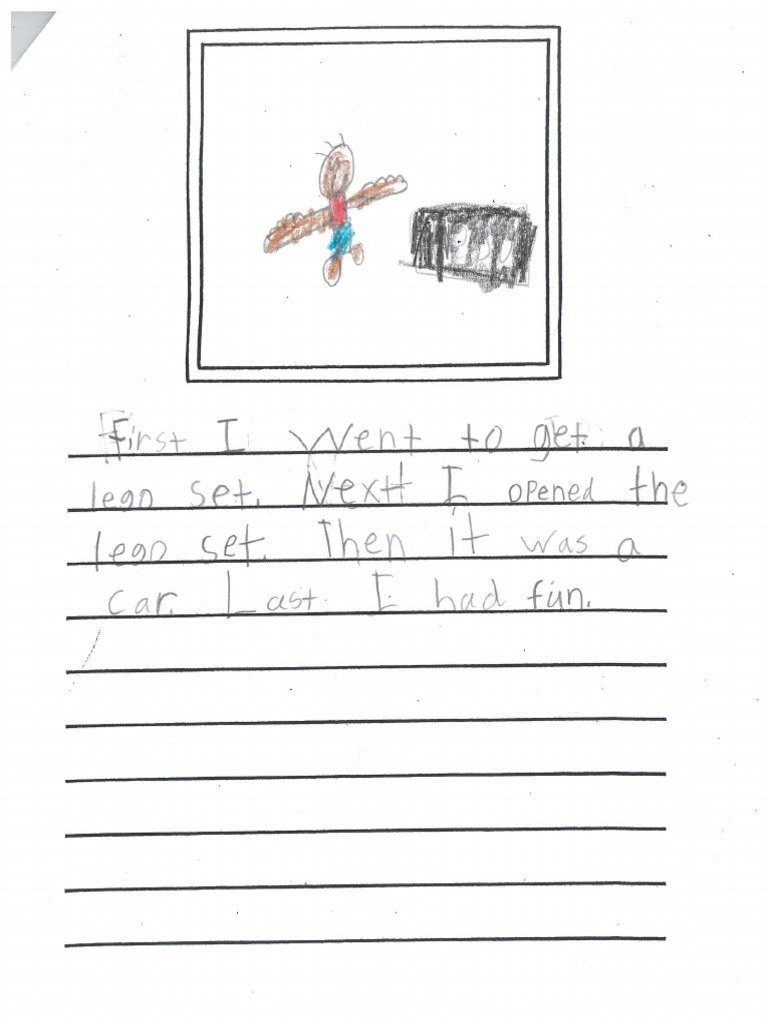 First I went to get a
lego set. Next I opened the
lego set. Then it was a
car. Last. I had fun.